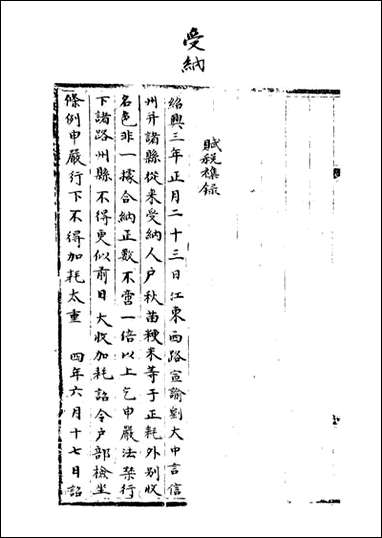 受納
賦稅襍錄
紹興三年正月二十三日江東西路宣諭劉大中言信
州并諸縣從来受納人户秋苗粳米等于正耗外别收
名色非一據合納正數不啻一倍以上乞申嚴法禁行
下諸路州縣不得更似前日大收加耗詔令户部檢坐
條例申嚴行下不得加耗太重　四年六月十七日詔